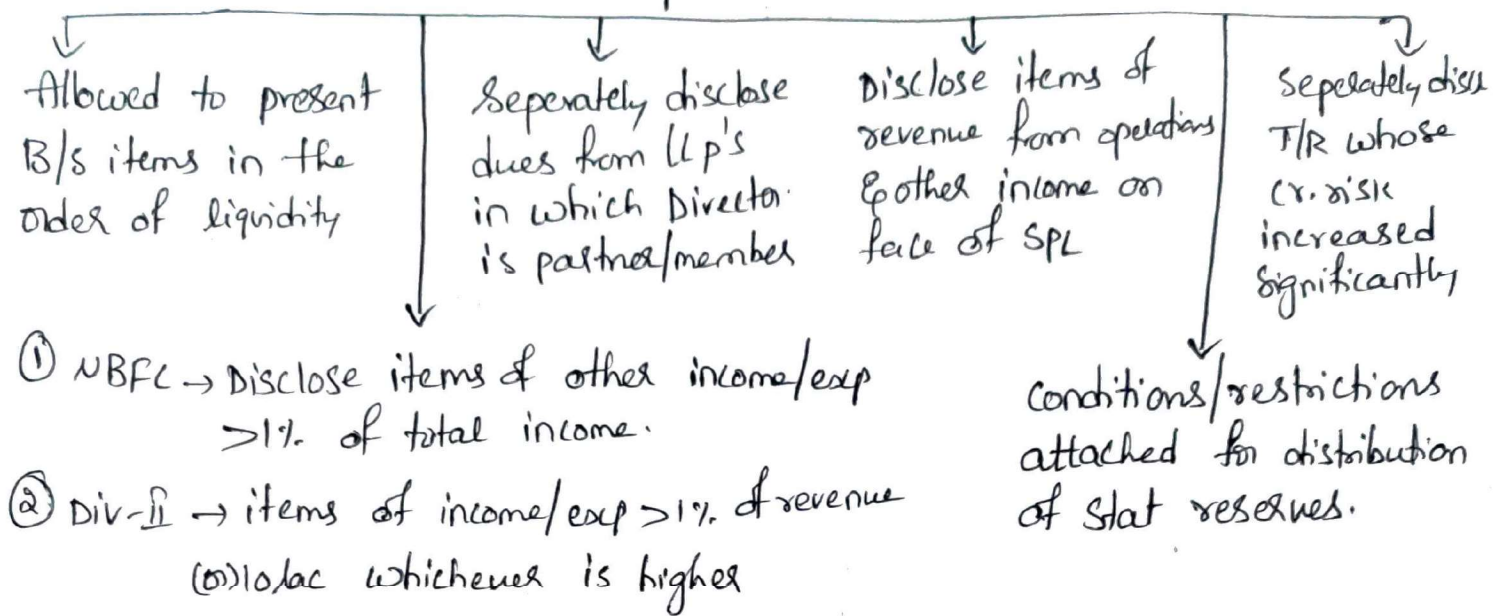 Allowed to present
B/S items in the
order of liquidity
Seperately disclose
dues from LLp's
in which Director
is partner/member
Disclose items of
revenue from operations
& other income on
face of SPL
Seperately disc
T/R whose
Cr. risk
increased
Significantly
① NBFC → Disclose items of other income/exp
>1% of total income.
② Div-II → items of income/exp >1% of revenue
(or) 10 lac whichever is higher
Conditions/restrictions
attached for distribution
of Stat reserves.